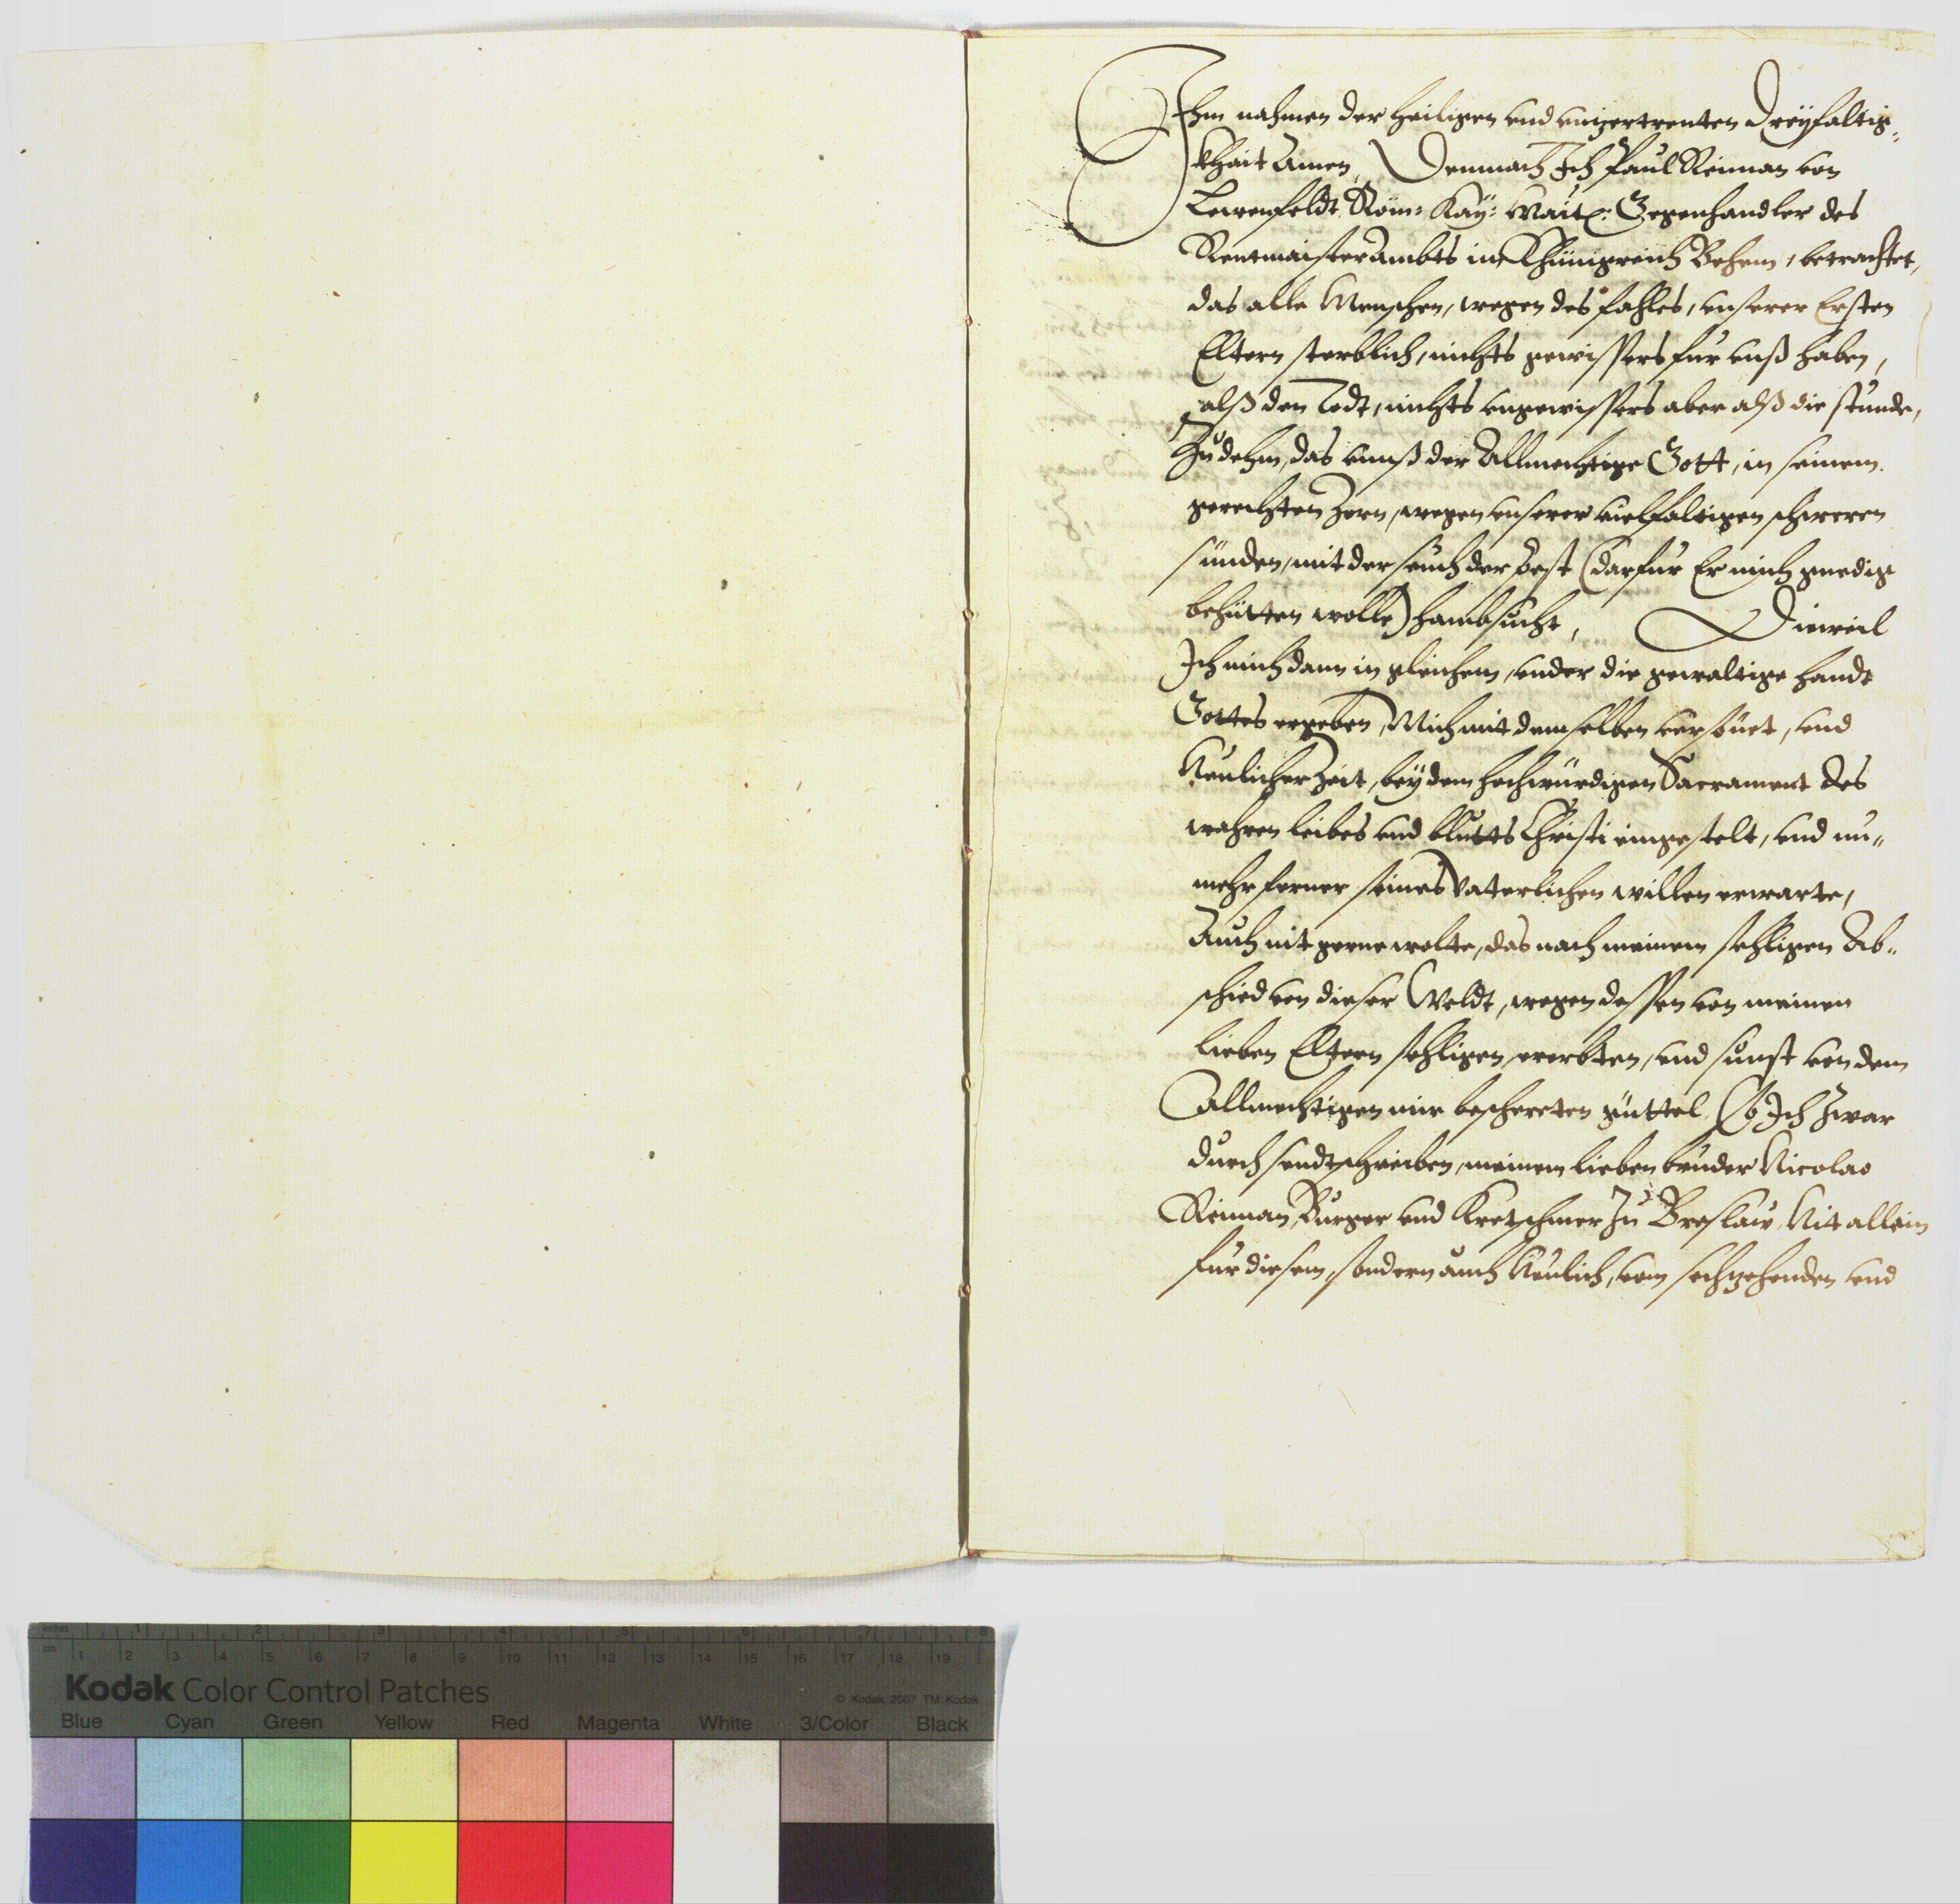 Ihm nahmen der heiligen vnd vnzertrenten Dreÿfaltig„
khait Amen, Demnach Ich Paul Reiman von
Lewenfeldt Röm: Kaÿ: Maÿt: Gegenhandler des
Rentmaisterambts im Khünigreich Behem, betrachtet,
das alle Menschen, wegen des fahles, vnserer Ersten
Eltern sterblich, nichts gewissers für vnß haben,
alß den Todt, nichts vngewissers aber alß die stunde,
Zu dehm, das vnnß der Allmechtige Gott, in seinem
gerechten Zorn, wegen vnserer vielfaltigen schweren
sünden, mit der seuch der pest (darfür Er mich gnedig
behütten wolle) haimbsucht, Dieweil
Ich mich dann in gleichem, vnder die gewaltige handt
Gottes ergeben, Mich mit demselben versönet, vnd
Neulicher Zeit, beÿ dem hochwürdigen Sacrament des
wahren leibes vnd bluetts Christi eingestelt, vnd nu„
mehr ferner seines Vaterlichen willen erwarte,
Auch nit gerne wolte, das nach meinem sehligen Ab„
schied von dieser Weldt, wegen dessen von meinen
lieben Eltern sehligen, ererbten, vnd sunst von dem
Allmechtigen mir bescherten güttel, Ob Ich zwar
durch sendtschreiben, meinem lieben bruder Nicolao
Reiman, Burger vnd Kretschmer Zu Breslaw, Nit allein
für diesem, sondern auch Neulich, vom sechzehenden vnd
inches 1 2 3 4 5 6 7 8
cm 1 2 3 4 5 6 7 8 9 10 11 12 13 14 15 16 17 18 19
Kodak Color Control Patches © Kodak, 2007 TM: Kodak
Blue Cyan Green Yellow Red Magenta White 3/Color Black